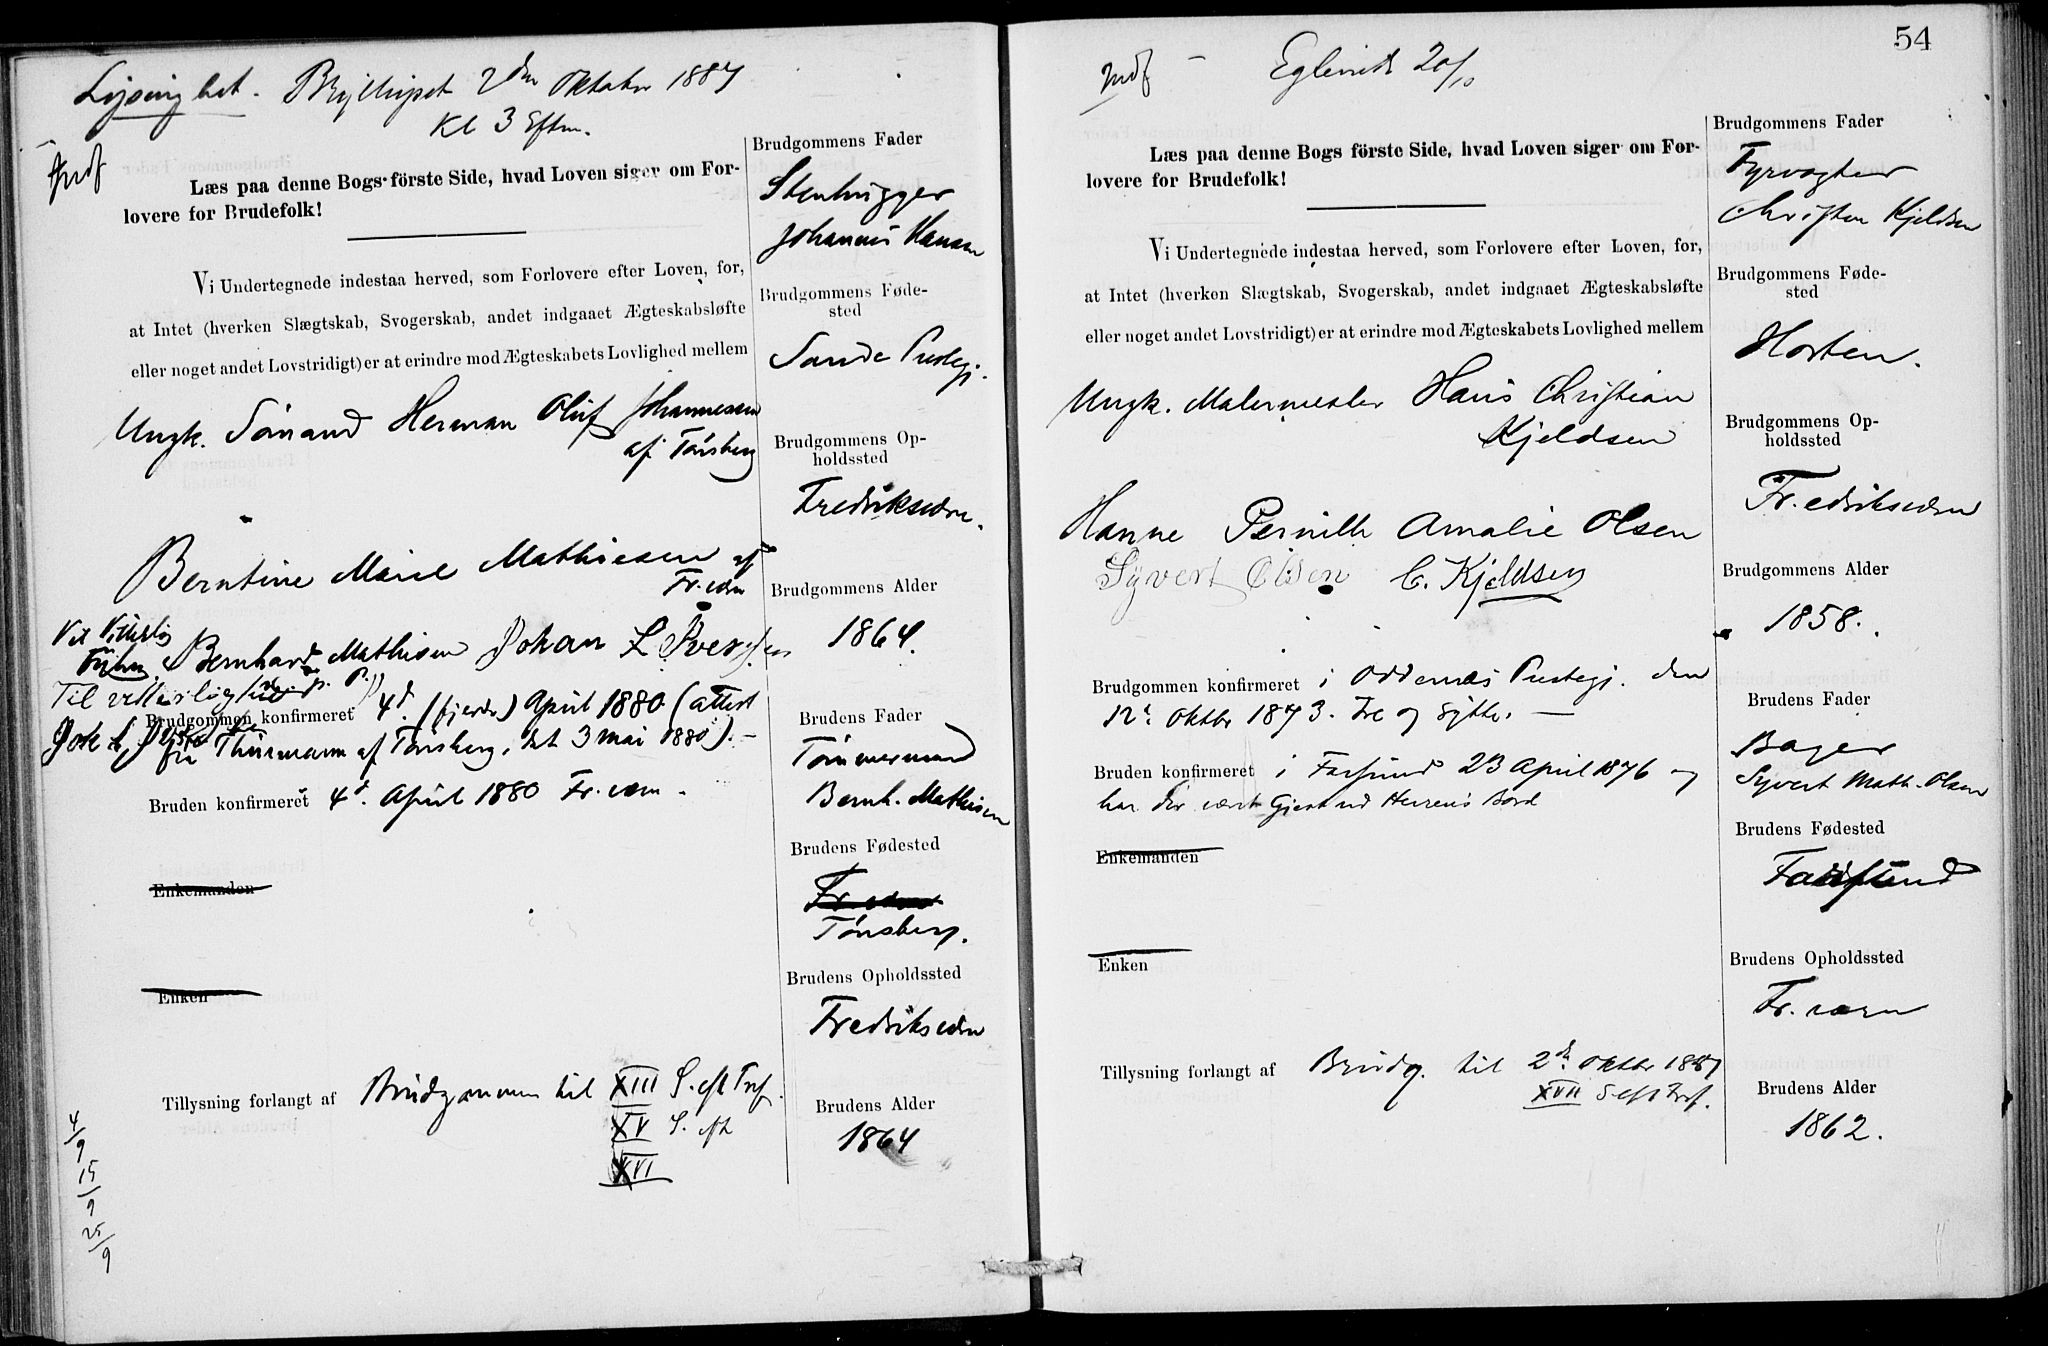 Lysinghet. Bryllupet 2den Oktober 1887
Kl 3 Eftm.
Indf
Læs paa denne Bogs förste Side, hvad Loven siger om For-
lovere for Brudefolk!
Vi Undertegnede indestaa herved, som Forlovere efter Loven, for,
at Intet (hverken Slægtskab, Svogerskab, andet indgaaet Ægteskabsløfte
eller noget andet Lovstridigt) er at erindre mod Ægteskabets Lovlighed mellem
Ungk. Sömand Herman Oluf Johannesen
af Tönsberg
Berntine Marie Mathisen af
Fr.værn
Til Vitterlig
Bernhard Mathisen Johan L Iversen
Til vitterlighed
Brudgommen konfirmeret 4d. (fjerde) April 1880 (attest
fra Thurmann af Tönsberg, dat 3 mai 1880). –
Bruden konfirmeret 4d. April 1880 Fr.værn.
Enkemanden
Enken
Tillysning forlangt af Brudgommen til XIII S. eft Tref.
XV S. eft
XVI
4/9
15/9
25/9
Brudgommens Fader
Stenhugger
Johannes Hansen
Brudgommens Føde-
sted
Sande Prestegj.
Brudgommens Op-
holdssted
Fredriksværn.
Brudgommens Alder
1864.
Brudens Fader
Tömmermand
Bernh. Mathisen
Brudens Fødested
Fr.værn
Tönsberg.
Brudens Opholdssted
Fredriksværn
Brudens Alder
1864
54
Indf – 20/10
Læs paa denne Bogs förste Side, hvad Loven siger om For-
lovere for Brudefolk!
Vi Undertegnede indestaa herved, som Forlovere efter Loven, for,
at Intet (hverken Slægtskab, Svogerskab, andet indgaaet Ægteskabsløfte
eller noget andet Lovstridigt) er at erindre mod Ægteskabets Lovlighed mellem
Ungk. Malermester Hans Christian
Kjeldsen
Hanne Pernille Amalie Olsen
Syvert Olsen C. Kjeldsen
Brudgommen konfirmeret i Oddernes Prestegj. den
12t Oktbr 1873. Tre og sytti. —
Bruden konfirmeret i Farsund 23 April 1876 og
har der været Gjest ved Herrens Bord
Enkemanden
Enken
Tillysning forlangt af Brudg. til 2den Oktbr 1887
XVII S eft Tref.
Brudgommens Fader
Fyrvogter
Christen Kjeldsen
Brudgommens Føde-
sted
Horten.
Brudgommens Op-
holdssted
Fredriksværn
Brudgommens Alder
1858.
Brudens Fader
Bager
Syvert Math. Olsen
Brudens Fødested
Farsund
Brudens Opholdssted
Fr.værn
Brudens Alder
1862.